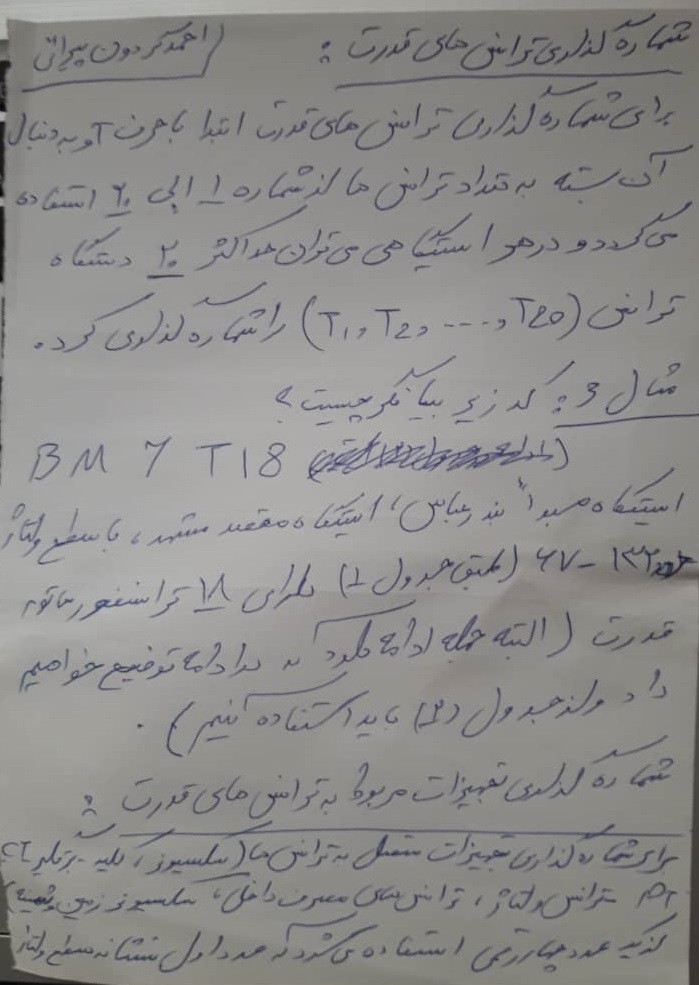 شماره گذاری ترانس های قدرت : احمد گردون پیرائی
برای شماره گذاری ترانس های قدرت ابتدا با حرف T و به دنبال
آن بسته به تعداد ترانس ها از شماره 1 الی 20 استفاده
می گردد و در هر ایستگاهی می توان حداکثر 20 دستگاه
ترانس (T1, T2, ----, T20) را شماره گذاری کرد.
مثال 3 : کد زیر بیانگر چیست ؟
BM 7 T18
ایستگاه مبدأ بندرعباس، ایستگاه مقصد مشهد، با سطح ولتاژ
132 - 67 (طبق جدول 1) دارای 18 ترانسفورماتور
قدرت (البته جمله ادامه دارد که در ادامه توضیح خواهیم
داد و از جدول (3) باید استفاده کنیم) .
شماره گذاری تجهیزات مربوط به ترانس های قدرت :
برای شماره گذاری تجهیزات متصل به ترانس ها (سکسیونر، کلید - بریکر، CT،
PT ترانس ولتاژ، ترانس های مصرف داخلی، سکسیونر زمین و
از یک عدد چهار رقمی استفاده می شود که عدد اول نشانه سطح ولتاژ